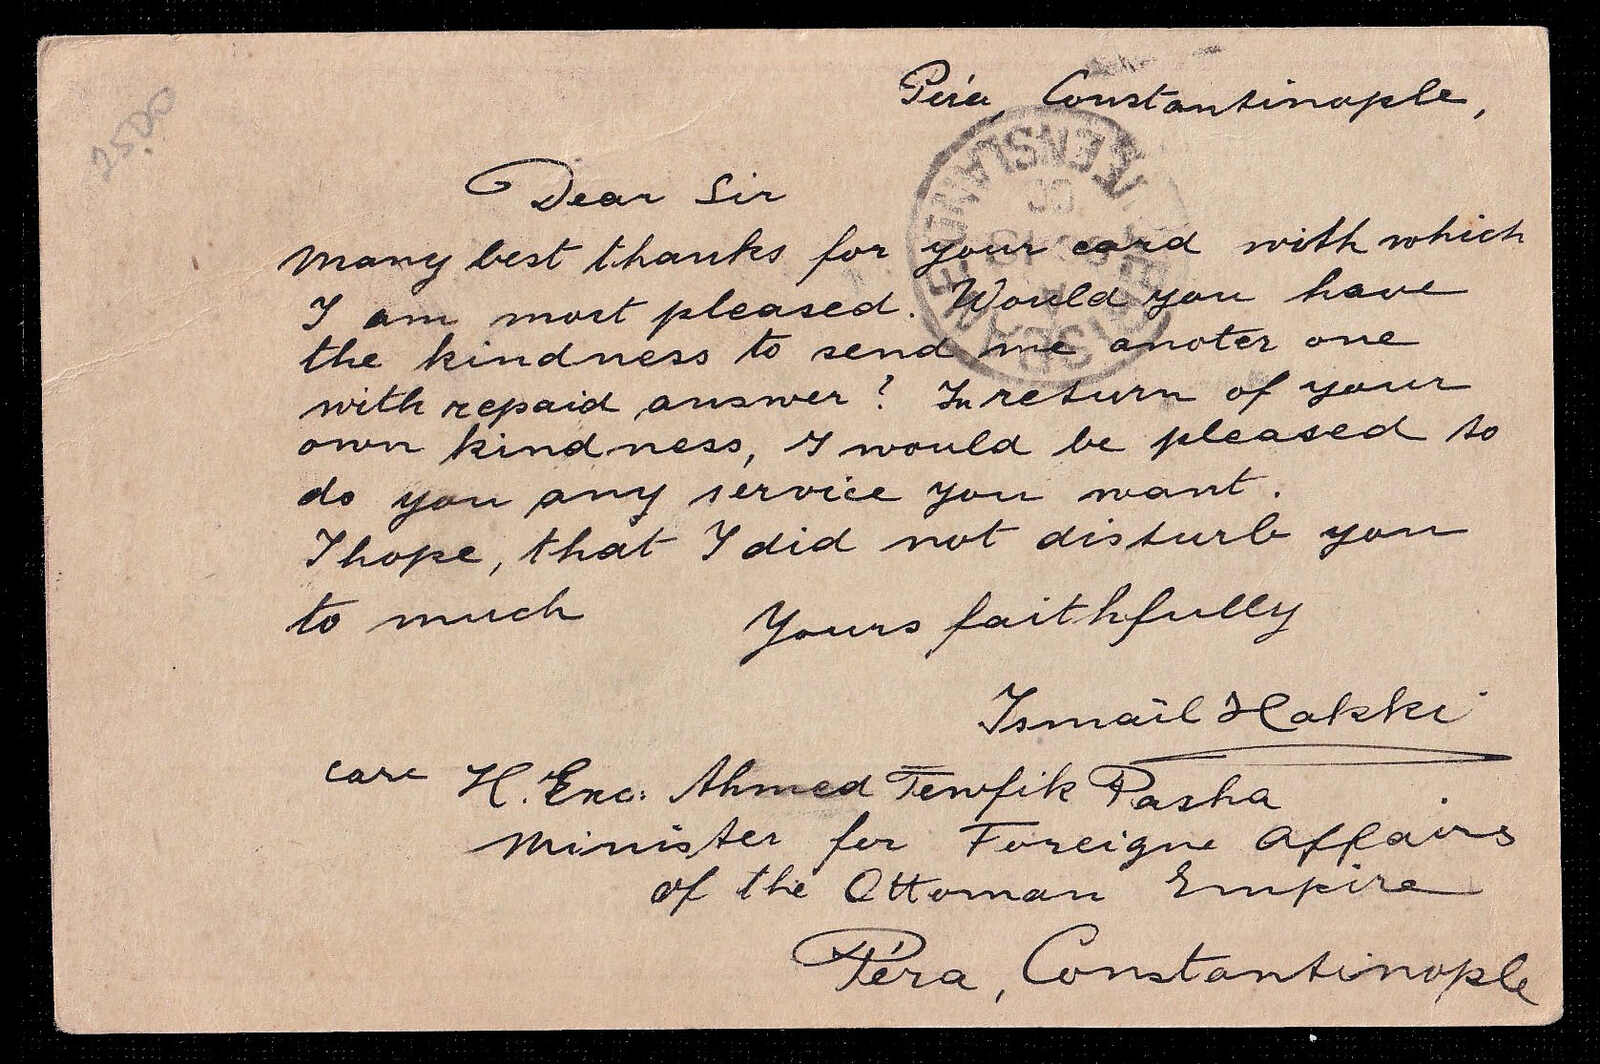 2500
Péra, Constantinople,
Dear Sir
Many best thanks for your card with which
I am most pleased. Would you have
the kindness to send me anoter one
with repaid answer? In return of your
own kindness, I would be pleased to
do you any service you want.
I hope, that I did not disturb you
to much Yours faithfully
Ismaïl Hakki
care H. Exc: Ahmed Tewfik Pasha
Minister for Foreigne Affairs
of the Ottoman Empire
Péra, Constantinople